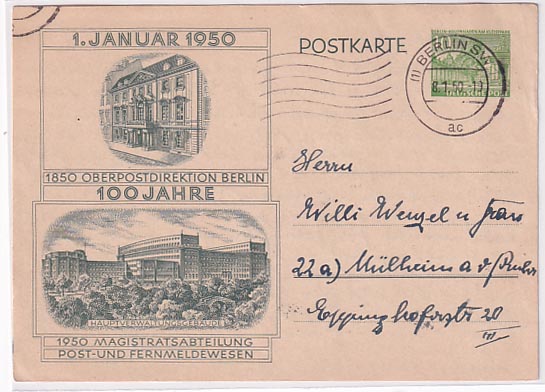 1. JANUAR 1950
POSTKARTE
(1) BERLIN SW
8.1.50
DEUTSCHE POST
ac
1850 OBERPOSTDIREKTION BERLIN
100 JAHRE
HAUPTVERWALTUNGSGEBÄUDE
1950 MAGISTRATSABTEILUNG
POST- UND FERNMELDEWESEN
Herrn
Willi Wenzel u Frau
22a) Mülheim a d/Ruhr
Eppinghoferstr 20
III